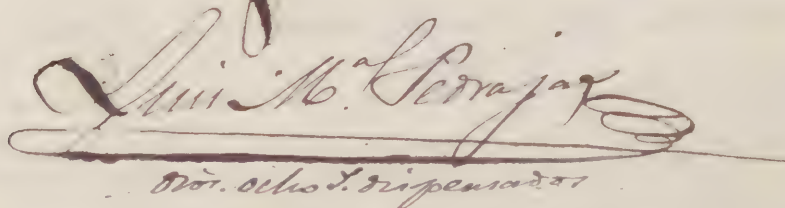 Luis M.ª Pedrajas
dros. ocho $. dispensados